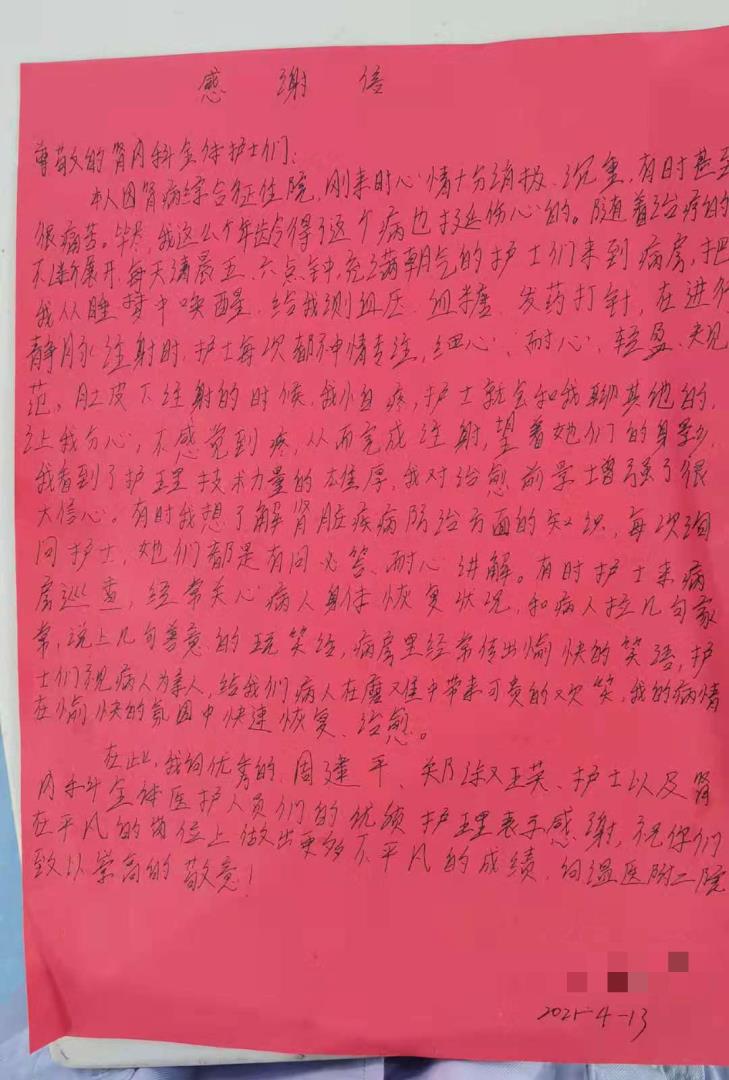 感谢信
尊敬的肾内科全体护士们:
本人因肾病综合征住院,刚来时心情十分消极、沉重,有时甚至
很痛苦。毕竟,我这么个年龄得了这个病也挺伤心的。随着治疗的
不断展开,每天清晨五、六点钟,充满朝气的护士们来到病房,把
我从睡梦中唤醒,给我测血压、血糖、发药打针,在进行
静脉注射时,护士每次都神情专注,细心、耐心、轻盈、规
范,肚皮下注射的时候,我怕疼,护士就会和我聊其他的,
让我分心,不感觉到疼,从而完成注射,望着她们的身影,
我看到了护理技术力量的雄厚,我对治愈前景增强了很
大信心。有时我想了解肾脏疾病防治方面的知识,每次询
问护士,她们都是有问必答、耐心讲解。有时护士来病
房巡查,经常关心病人身体恢复状况,和病人拉几句家
常,说上几句善意的玩笑话,病房里经常传出愉快的笑语,护
士们视病人为亲人,给我们病人在磨难中带来可贵的欢笑,我的病情
在愉快的氛围中快速恢复、治愈。
在此,我向优秀的周建平、郑淑英、护士以及肾
内科全体医护人员们的优质护理表示感谢,祝你们
在平凡的岗位上做出更多不平凡的成绩,向温医附二院
致以崇高的敬意!
2021-4-13